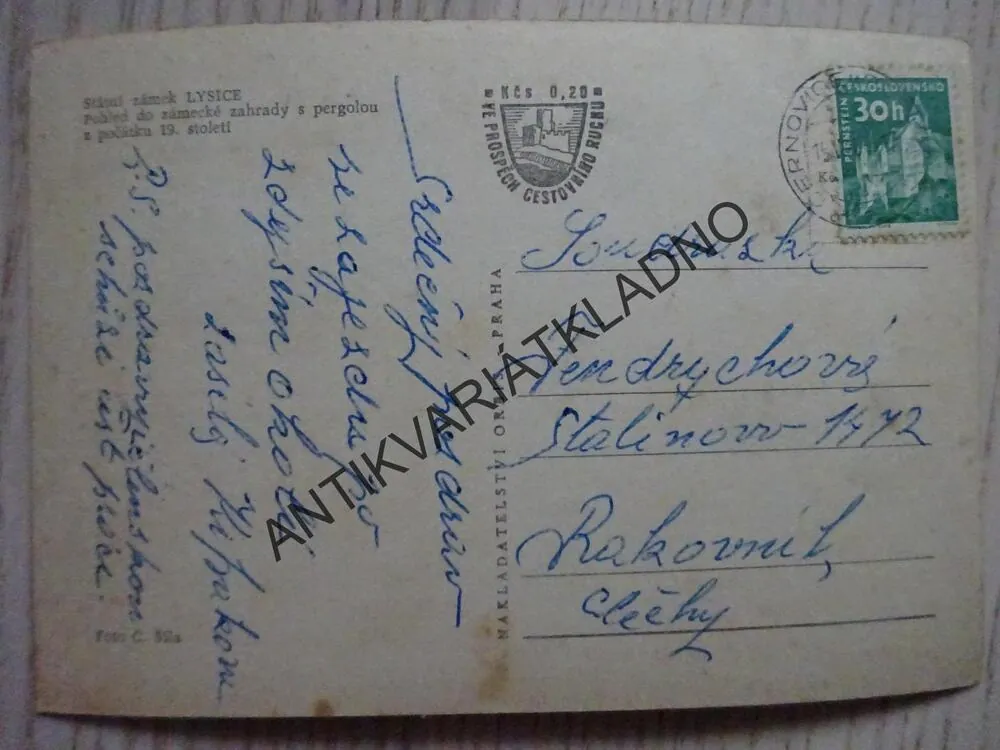 Státní zámek LYSICE
Pohled do zámecké zahrady s pergolou
z počátku 19. století
Kčs 0,20
VE PROSPĚCH CESTOVNÍHO RUCHU
ČESKOSLOVENSKO
30h
PERNŠTEJN
ČERNOVICE
Srdečný pozdrav
ze zájezdu po
zdejším okolí.
zasílá
P.S. pozdravuji
schůzi
NAKLADATELSTVÍ ORBIS - PRAHA
Vendrychová
Stalinova 1472
Rakovník,
Čechy
Foto Č. Šíla
ANTIKVARIATKLADNO